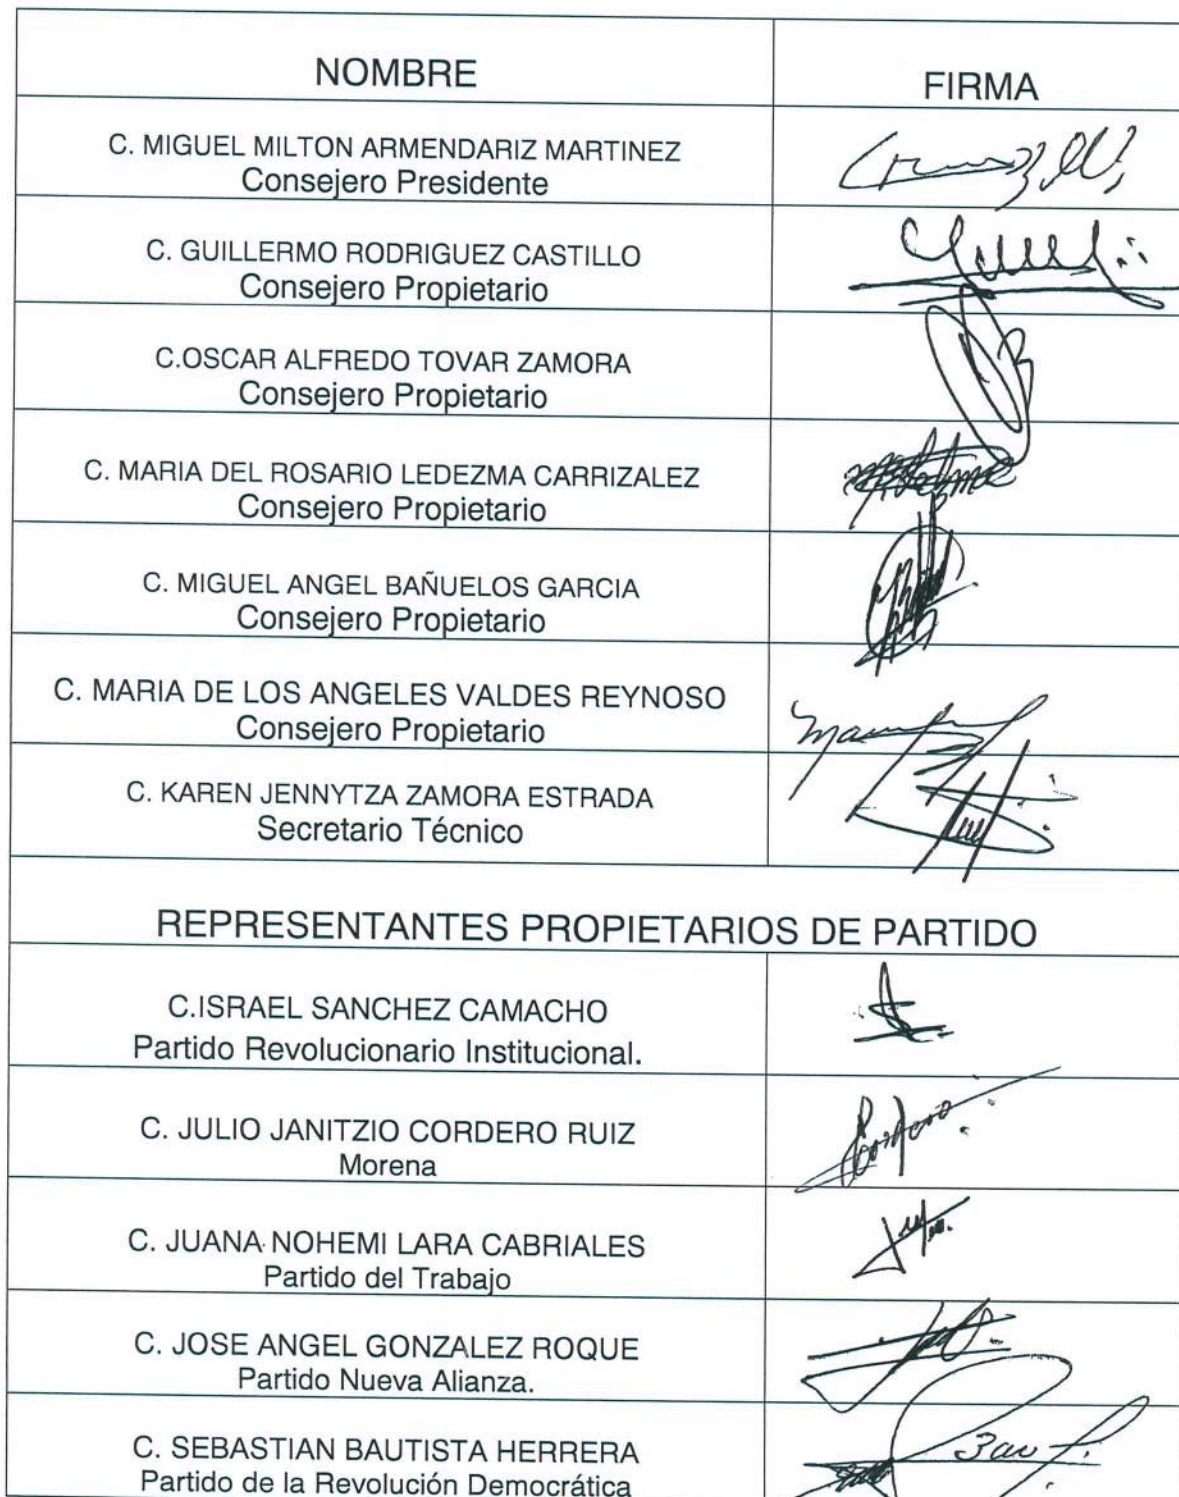 NOMBRE
FIRMA
C. MIGUEL MILTON ARMENDARIZ MARTINEZ
Consejero Presidente
C. GUILLERMO RODRIGUEZ CASTILLO
Consejero Propietario
C.OSCAR ALFREDO TOVAR ZAMORA
Consejero Propietario
C. MARIA DEL ROSARIO LEDEZMA CARRIZALEZ
Consejero Propietario
C. MIGUEL ANGEL BAÑUELOS GARCIA
Consejero Propietario
C. MARIA DE LOS ANGELES VALDES REYNOSO
Consejero Propietario
C. KAREN JENNYTZA ZAMORA ESTRADA
Secretario Técnico
REPRESENTANTES PROPIETARIOS DE PARTIDO
C.ISRAEL SANCHEZ CAMACHO
Partido Revolucionario Institucional.
C. JULIO JANITZIO CORDERO RUIZ
Morena
C. JUANA NOHEMI LARA CABRIALES
Partido del Trabajo
C. JOSE ANGEL GONZALEZ ROQUE
Partido Nueva Alianza.
C. SEBASTIAN BAUTISTA HERRERA
Partido de la Revolución Democrática